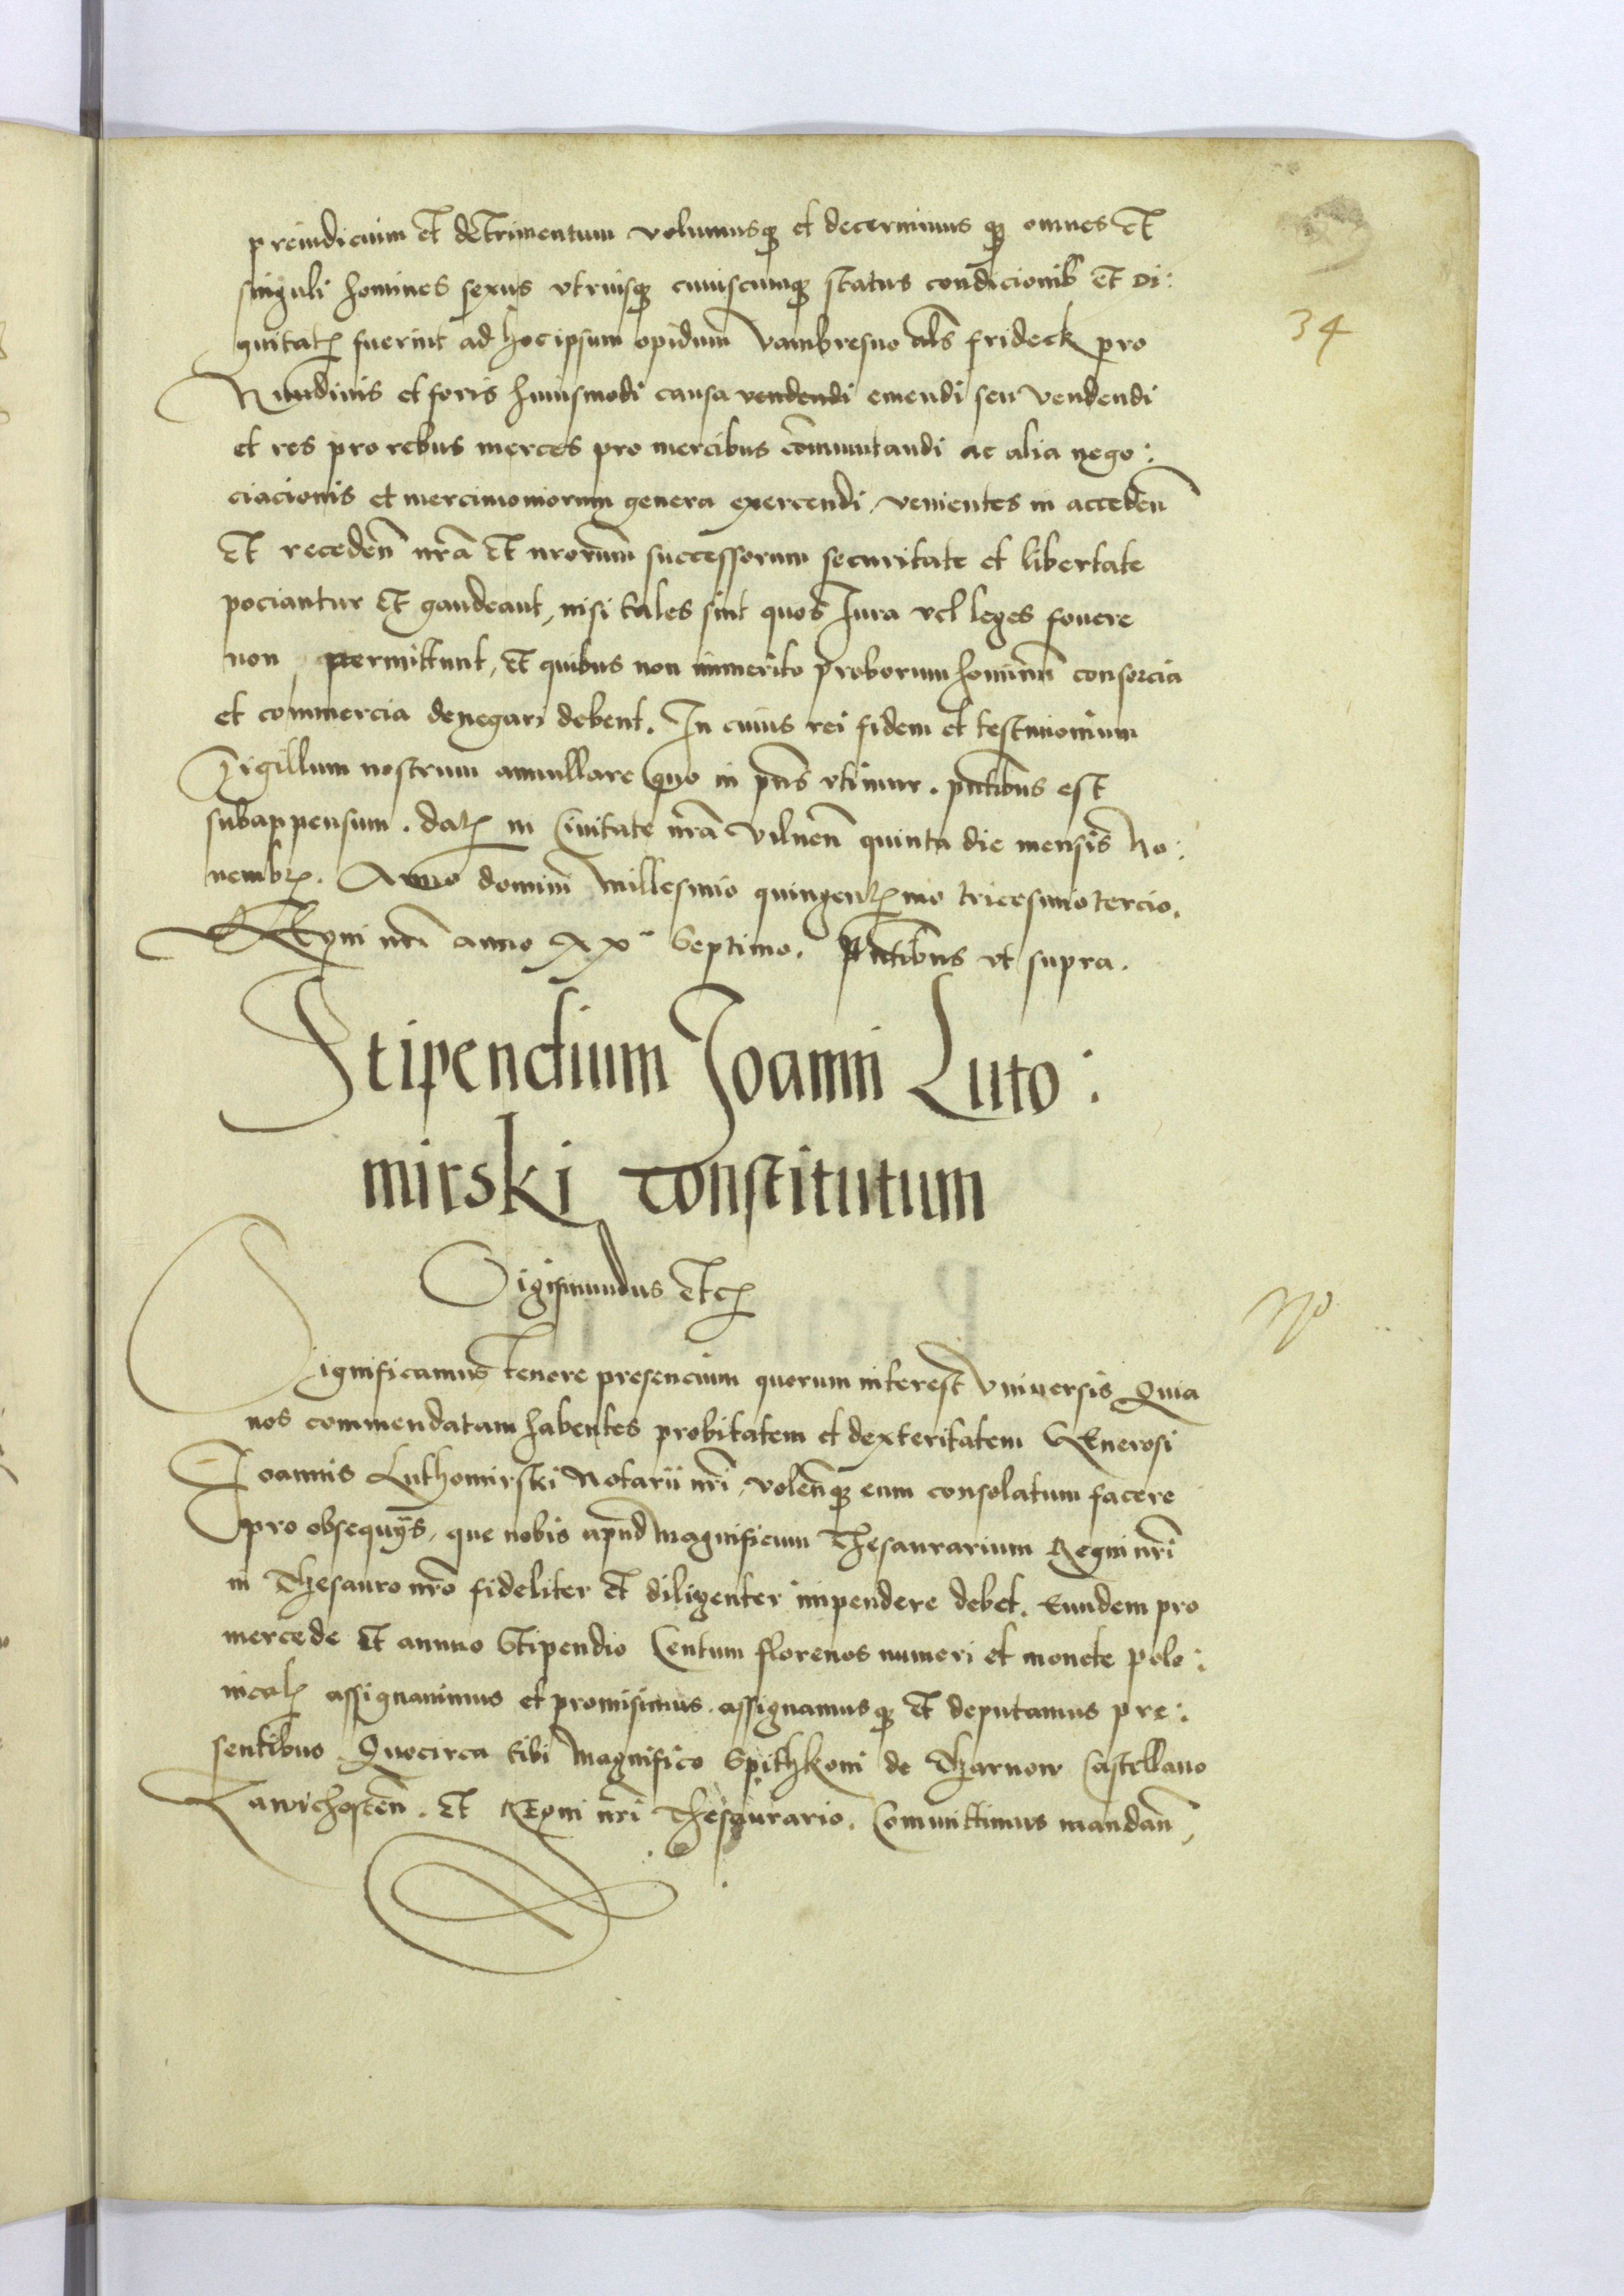 preiudicium et detrimentum volumusq3 et decernimus q3 omnes et
singuli homines sexus vtriusq3 cuiuscumq3 status condicionib et Di:
gnitatꝭ fuerint ad hoc ipsum opidum Vambresno als frideck pro
Nundinis et foris huiusmodi causa vendendi emendi seu vendendi
et res pro rebus merces pro mercibus com̄mutandi ac alia nego:
ciacionis et mercimoniorum genera exercendi, venientes in acceden̄
Et receden̄ nr̄a Et nrorum̄ successorum securitate et libertate
pociantur Et gaudeant, nisi tales sint quos Iura vel leges fouere
non permittunt, Et quibus non immerito proborum hominum̄ consorcia
et commercia denegari debent. In cuius rei fidem et testimonium
Sigillum nostrum annullare quo in pn̄s vtimur. pn̄tibus est
subappensum. datꝭ in Ciuitate nr̄a Vilnen̄ quinta die mensis No:
uembrꝭ. Anno domini Millesimo quingentꝭimo tricesimo tercio.
REgni nr̄i anno XXmo Septimo. Pn̄tibus vt supra.
Stipendium Joanni Luto:
mirski constitutum
Sigismundus Etcꝭ
34
Significamus tenore presencium quorum interest Vniuersis Quia
nos commendatam habentes probitatem et dexteritatem GEnerosi
Ioannis Luthomirski Notarii nr̄i, volen̄q3 eum consolatum facere
pro obsequijs, que nobis apud Magnificum Thesaurarium Regni nr̄i
in Thesauro nr̄o fideliter Et diligenter impendere debet. Eundem pro
mercede Et annuo Stipendio Centum florenos numeri et monete polo:
nicalꝭ assignauimus et promisimus. assignamusq3 Et deputamus pre:
sentibus Quocirca tibi Magnifico Spithkoni de Tharnow Castellano
Zawichosten̄. Et REgni nr̄i Thesaurario. Comittimus mandan̄,